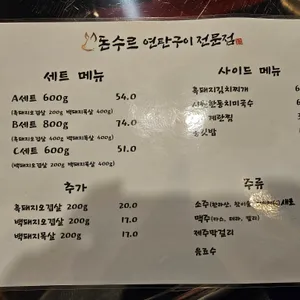 돈수르 연탄구이 전문점
세트 메뉴
A세트 600g 54.0
(흑돼지오겹살 200g 백돼지목살 400g)
B세트 800g 74.0
(흑돼지오겹살 400g 백돼지목살 400g)
C세트 600g 51.0
(백돼지오겹살 200g 백돼지목살 400g)
추가
흑돼지오겹살 200g 20.0
백돼지오겹살 200g 17.0
백돼지목살 200g 17.0
사이드 메뉴
흑돼지김치찌개
동치미국수
계란찜
주류
소주(한라산, 참이슬, 새로
맥주(카스, 테라, 켈리)
제주막걸리
음료수